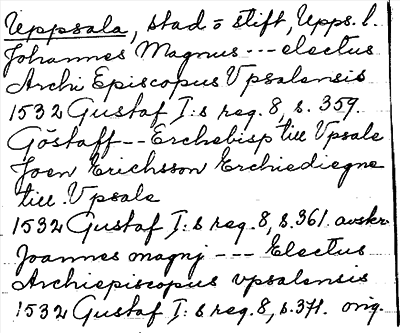 Uppsala, stad o stift, Upps. l.
Johannes Magnus --- electus
Archi Episcopus Vpsalensis
1532 Gustaf I:s reg. 8, s. 359.
Göstaff -- Erchebisp till Vpsale
Joen Erichsson Erchiediegne
till Vpsale
1532 Gustaf I:s reg. 8, s. 361. avskr.
Joannes magnj --- Electus
Archiepiscopus vpsalensis
1532 Gustaf I:s reg. 8, s. 371. orig.